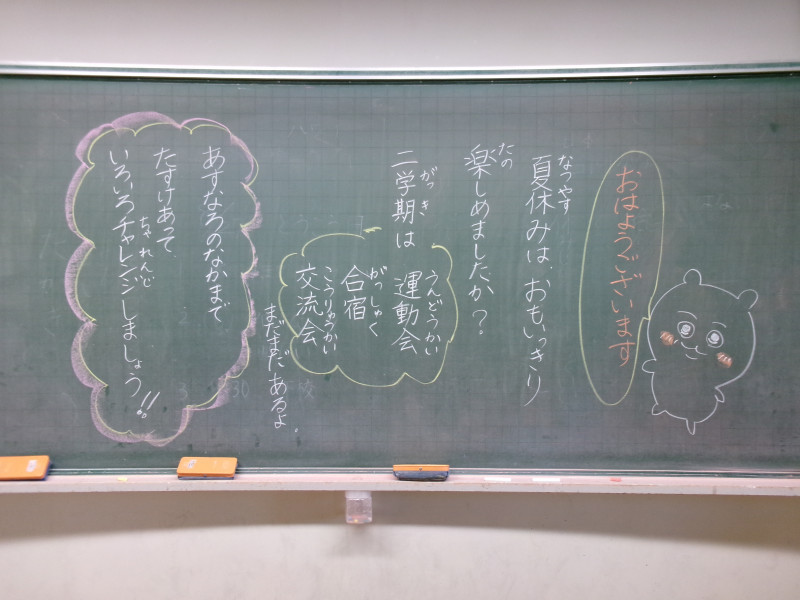 おはようございます
夏休みは、おもいっきり
なつやす
楽しめましたか？
たの
二学期は
がっき
運動会
うんどうかい
合宿
がっしゅく
交流会
こうりゅうかい
まだまだあるよ。
あすなろのなかまで
たすけあって、
いろいろチャレンジしましょう!!
ちゃれんじ